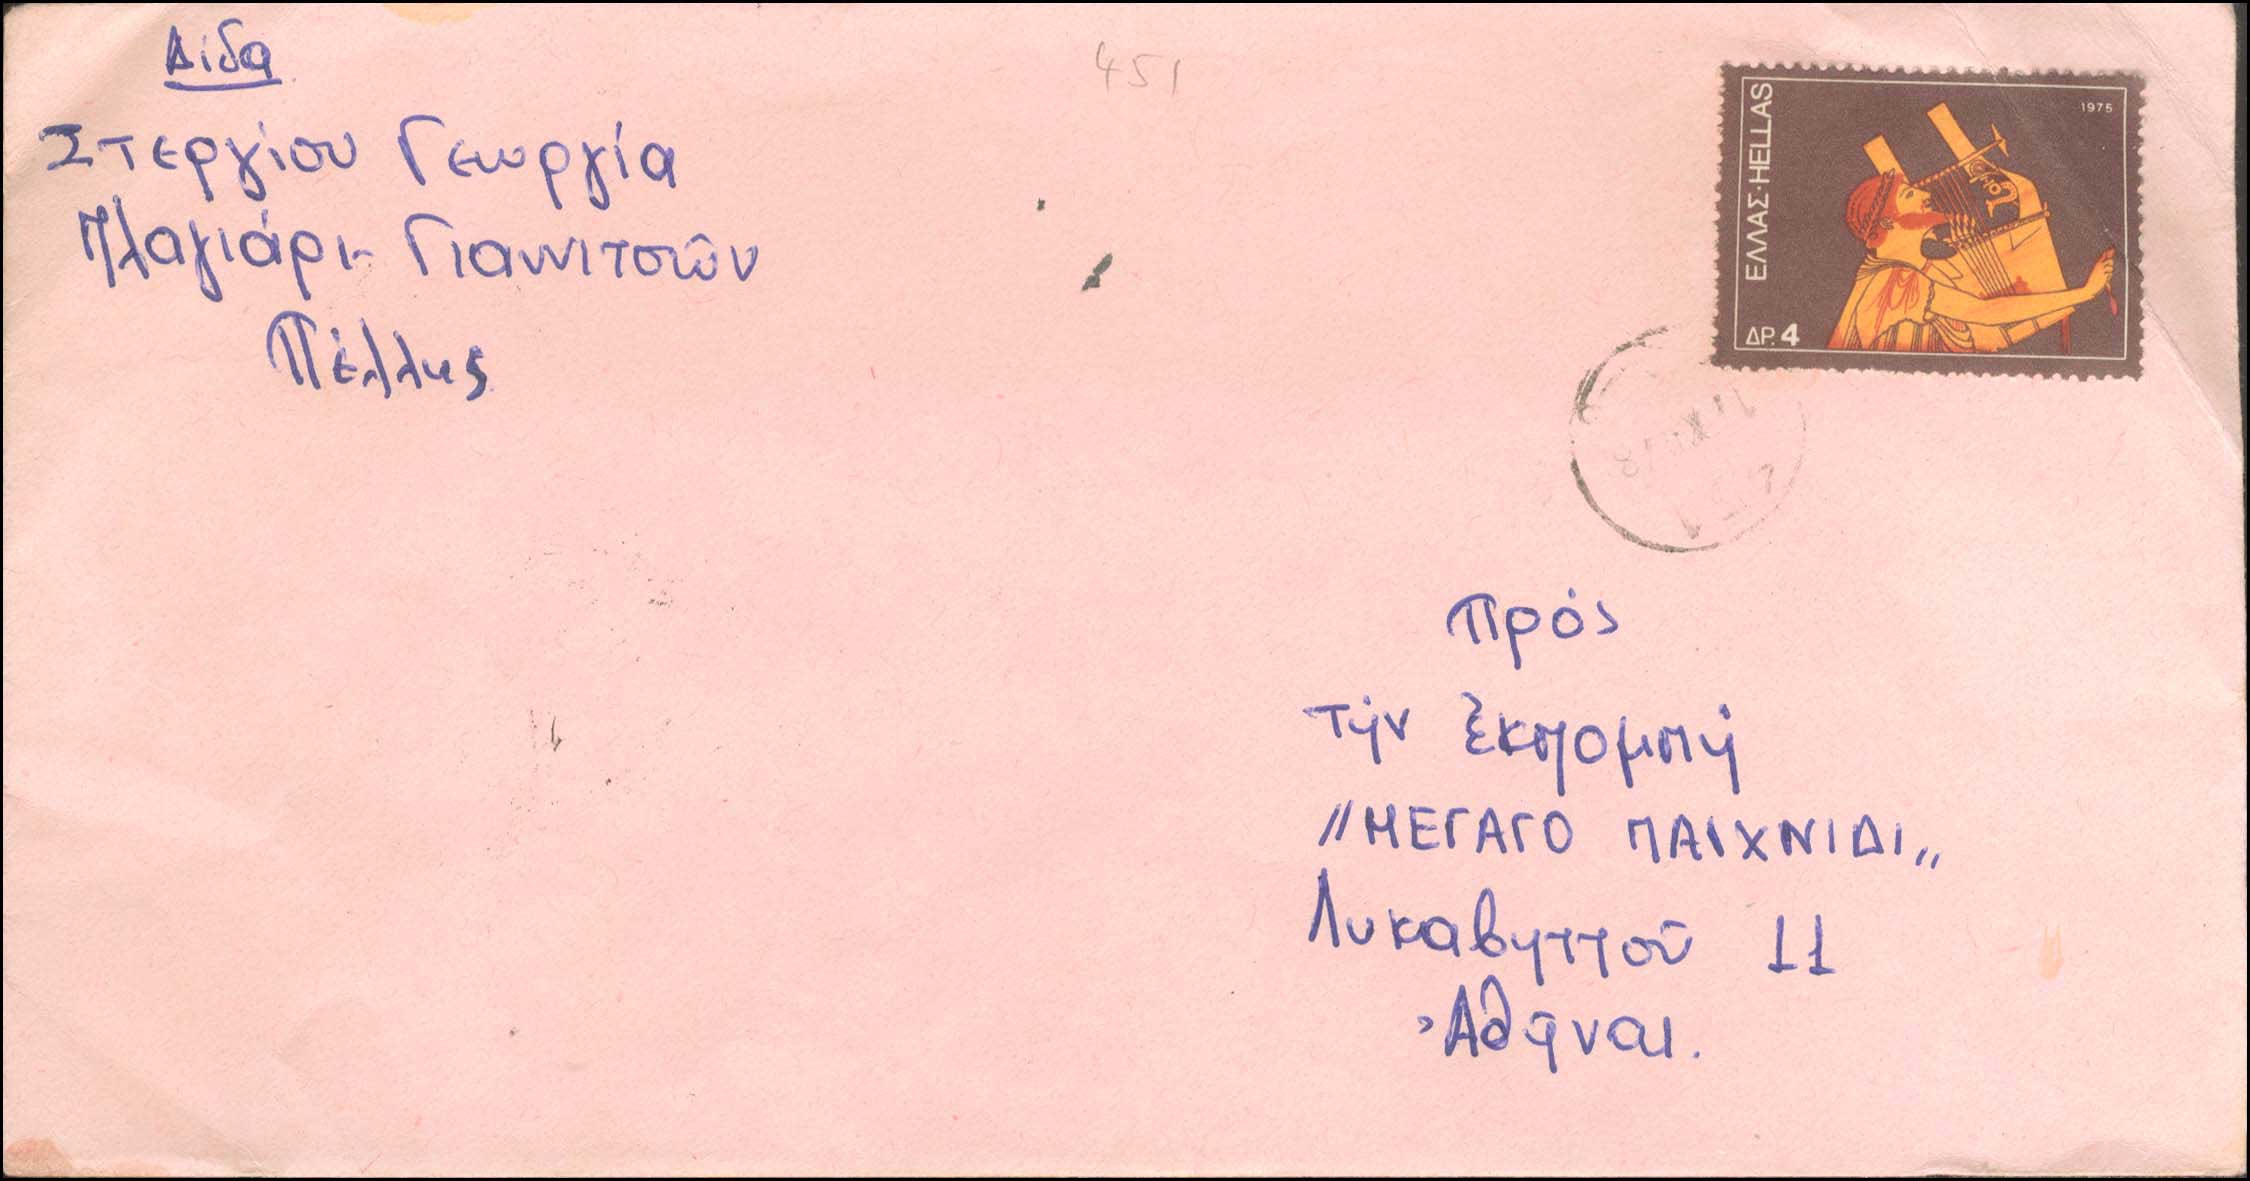 Δίδα
451
Στεργίου Γεωργία
Πλαγιάρι - Γιαννιτσῶν
Πέλλης
1975
ΕΛΛΑΣ·HELLAS
ΔΡ. 4
Πρός
τήν ἐκπομπή
"ΜΕΓΑΓΟ ΠΑΙΧΝΙΔΙ„
Λυκαβηττοῦ 11
Ἀθῆναι.